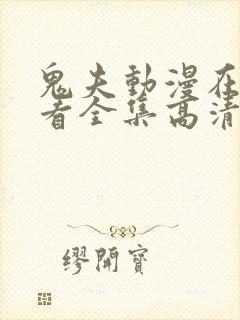 鬼夫動漫在
看全集高清
繆開寶